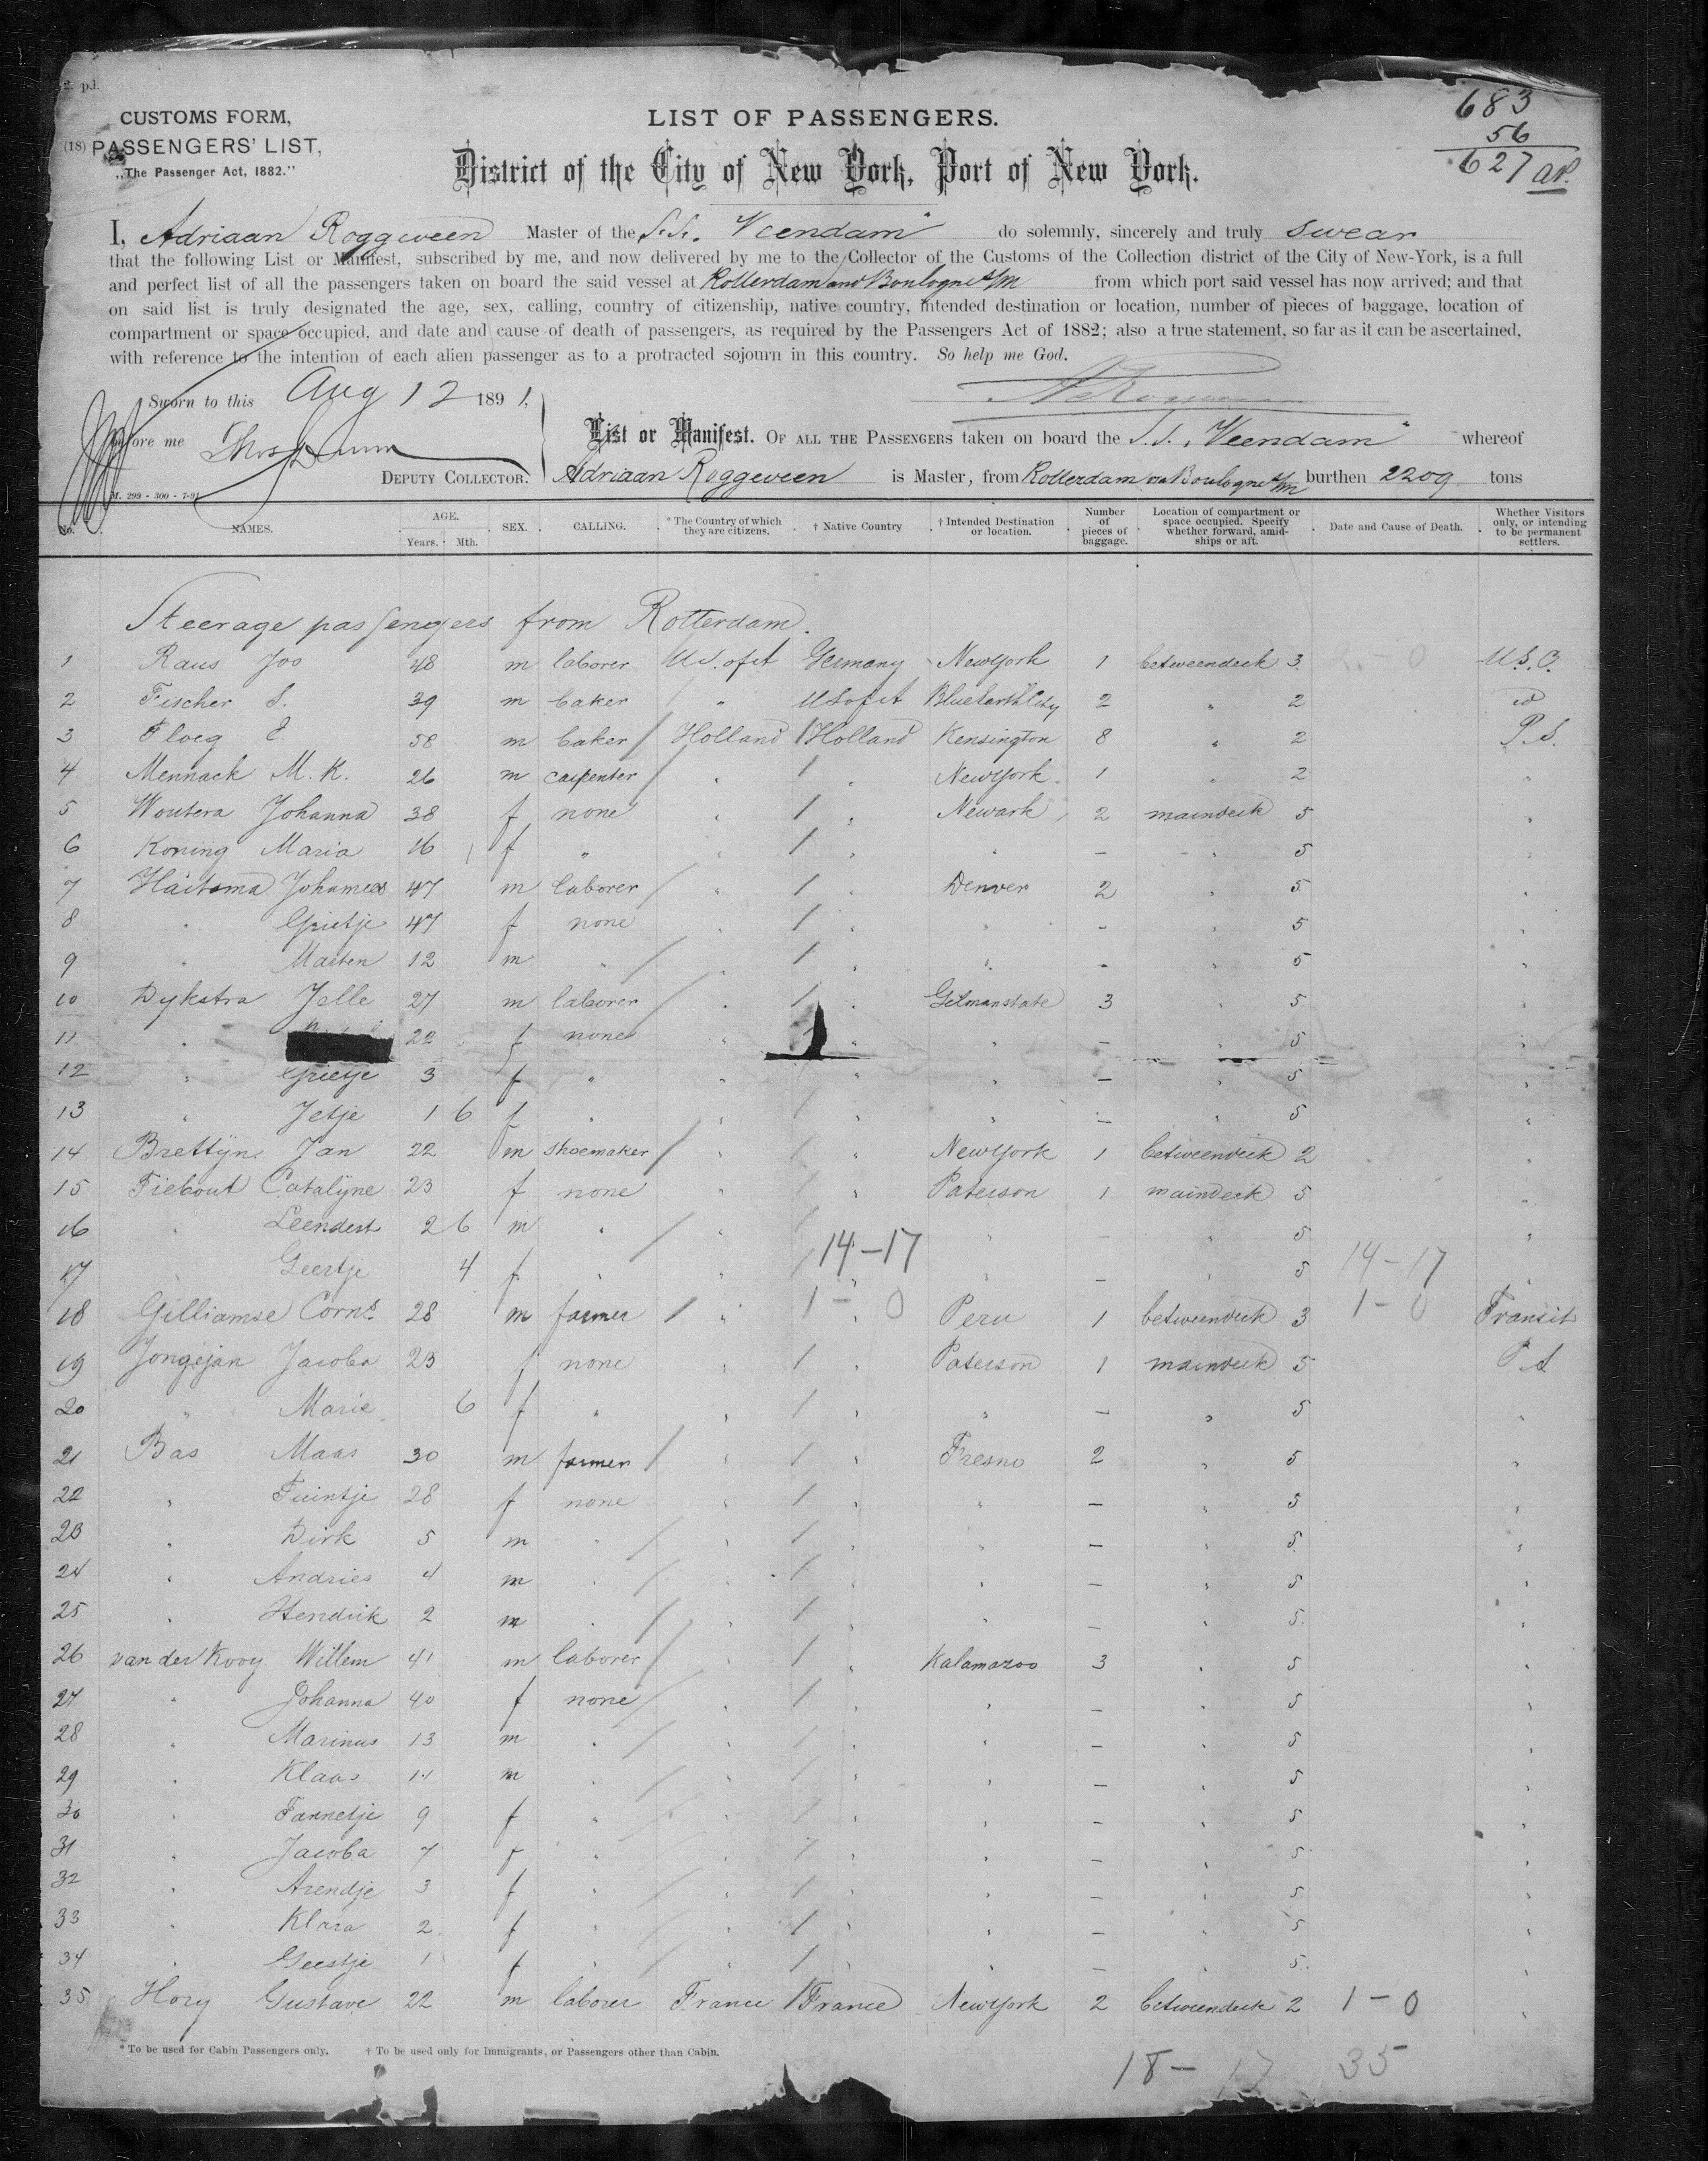 2. p.l.
CUSTOMS FORM,
(18) PASSENGERS' LIST,
„The Passenger Act, 1882."
LIST OF PASSENGERS.
District of the City of New York, Port of New York.
683
56
627 ap.
I, Adriaan Roggeveen Master of the S.S. Veendam" do solemnly, sincerely and truly swear
that the following List or Manifest, subscribed by me, and now delivered by me to the Collector of the Customs of the Collection district of the City of New-York, is a full
and perfect list of all the passengers taken on board the said vessel at Rotterdam and Boulogne s/m from which port said vessel has now arrived; and that
on said list is truly designated the age, sex, calling, country of citizenship, native country, intended destination or location, number of pieces of baggage, location of
compartment or space occupied, and date and cause of death of passengers, as required by the Passengers Act of 1882; also a true statement, so far as it can be ascertained,
with reference to the intention of each alien passenger as to a protracted sojourn in this country. So help me God.
Sworn to this Aug 12 1891,
before me
DEPUTY COLLECTOR.
M. 299 - 300 - 7-91
List or Manifest. OF ALL THE PASSENGERS taken on board the S.S. „Veendam" whereof
Adriaan Roggeveen is Master, from Rotterdam via Boulogne s/m burthen 2209 tons
No. NAMES. AGE. Years. Mth. SEX. CALLING. * The Country of which they are citizens. † Native Country † Intended Destination or location. Number of pieces of baggage. Location of compartment or space occupied. Specify whether forward, amidships or aft. Date and Cause of Death. Whether Visitors only, or intending to be permanent settlers.
Steerage passengers from Rotterdam.
1 Raus Jos 48 m laborer U.S. of A Germany New York 1 betweendeck 3 2 - 0 U.S.C.
2 Fischer S. 39 m baker " U S of A Blue Earth City 2 " 2 do
3 Ploeg E 58 m baker / Holland / Holland Kensington 8 " 2 P.S.
4 Mennack M. K. 26 m carpenter / " / " New York 1 " 2 "
5 Woutera Johanna 38 f none " / " Newark 2 maindeck 5 "
6 Koning Maria 16 f " " / " " - " 5 "
7 Haitsma Johannes 47 m laborer / " / " Denver 2 " 5 "
8 " Grietje 47 f none " / " " - " 5 "
9 " Marten 12 m " / " / " " - " 5 "
10 Dykstra Jelle 27 m laborer / " / " Gilmanstate 3 " 5 "
11 " 22 f none " " " - " 5 "
12 " Grietje 3 f " " " " - " 5 "
13 " Jetje 1 6 f " " / " " - " 5 "
14 Brettyne Jan 22 m shoemaker / " / " New York 1 betweendeck 2 "
15 Fiebout Catalyne 23 f none " / " Paterson 1 maindeck 5 "
16 " Leendert 2 6 m " / " / " " - " 5 "
14-17 14-17
17 " Geertje 4 f " " / " " - " 5 "
1 - 0 1 - 0
18 Gilliamse Corns. 28 m farmer / " " Peru 1 betweendeck 3 Transit
19 Jongejan Jacoba 23 f none " / " Paterson 1 maindeck 5 P.S
20 " Marie 6 f " " / " " - " 5 "
21 Bas Maas 30 m farmer / " / " Fresno 2 " 5 "
22 " Tuintje 28 f none " / " " - " 5 "
23 " Dirk 5 m " / " / " " - " 5 "
24 " Andries 4 m " / " / " " - " 5 "
25 " Hendrik 2 m " / " / " " - " 5 "
26 van der Kooy Willem 41 m laborer / " / " Kalamazoo 3 " 5 "
27 " Johanna 40 f none / " / " " - " 5 "
28 " Marinus 13 m " / " / " " - " 5 "
29 " Klaas 11 m " / " / " " - " 5 "
30 " Tannetje 9 f " / " / " " - " 5 "
31 " Jacoba 7 f " / " / " " - " 5 "
32 " Arendje 3 f " / " / " " - " 5 "
33 " Klara 2 f " / " / " " - " 5 "
34 " Geertje 1 f " / " / " " - " 5 "
35 Hory Gustave 22 m laborer France / France New York 2 betweendeck 2 1 - 0 "
* To be used for Cabin Passengers only. † To be used only for Immigrants, or Passengers other than Cabin.
18 - 17 35